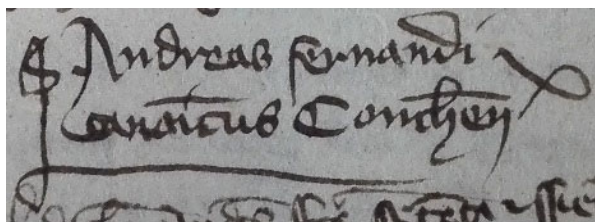 Andreas fernandi
canoicus Conchen